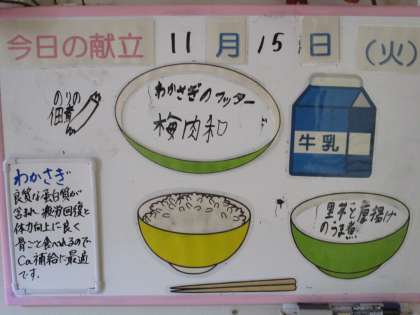 今日の献立 11月15日(火)
のりの
佃煮
わかさぎのフッター
梅肉和
牛乳
わかさぎ
良質な蛋白質が
含まれ疲労回復と
体力向上に良く
骨ごと食べれるので
Ca補給に最適
です。
里芋と厚揚げ
のうま煮